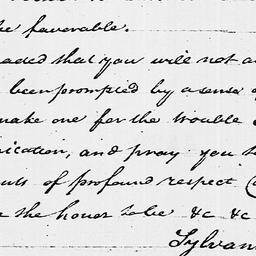 be favorable.
aded that you will not a
been prompted by a sense o
make one for the trouble
ication, and pray you to
nts of profound respect
the honor to be &c &c
Sylvan